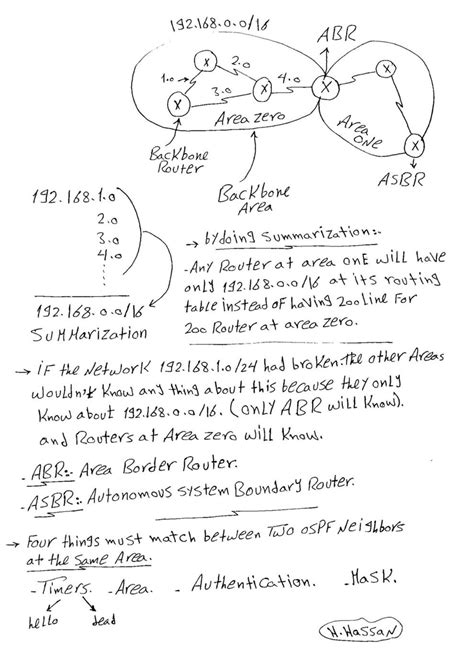 192.168.0.0/16
ABR
2.0
1.0
3.0
4.0
X
X
X
X
X
X
Area zero
Area ONE
Backbone Router
Backbone Area
ASBR
192.168.1.0
2.0
3.0
4.0
192.168.0.0/16
SUMMarization
→ by doing Summarization:-
- Any Router at area onE will have
only 192.168.0.0/16 at its routing
table instead oF having 200 Line For
200 Router at area zero.
→ iF the Network 192.168.1.0/24 had broken. the other Areas
wouldn't Know any thing about this because they only
Know about 192.168.0.0/16. (only ABR will Know).
and Routers at Area zero will Know.
- ABR:- Area Border Router.
- ASBR:- Autonomous system Boundary Router.
→ Four things must match between Two OSPF Neighbors
at the Same Area.
- Timers. - Area. - Authentication. - Mask.
hello dead
H.HaSSaN